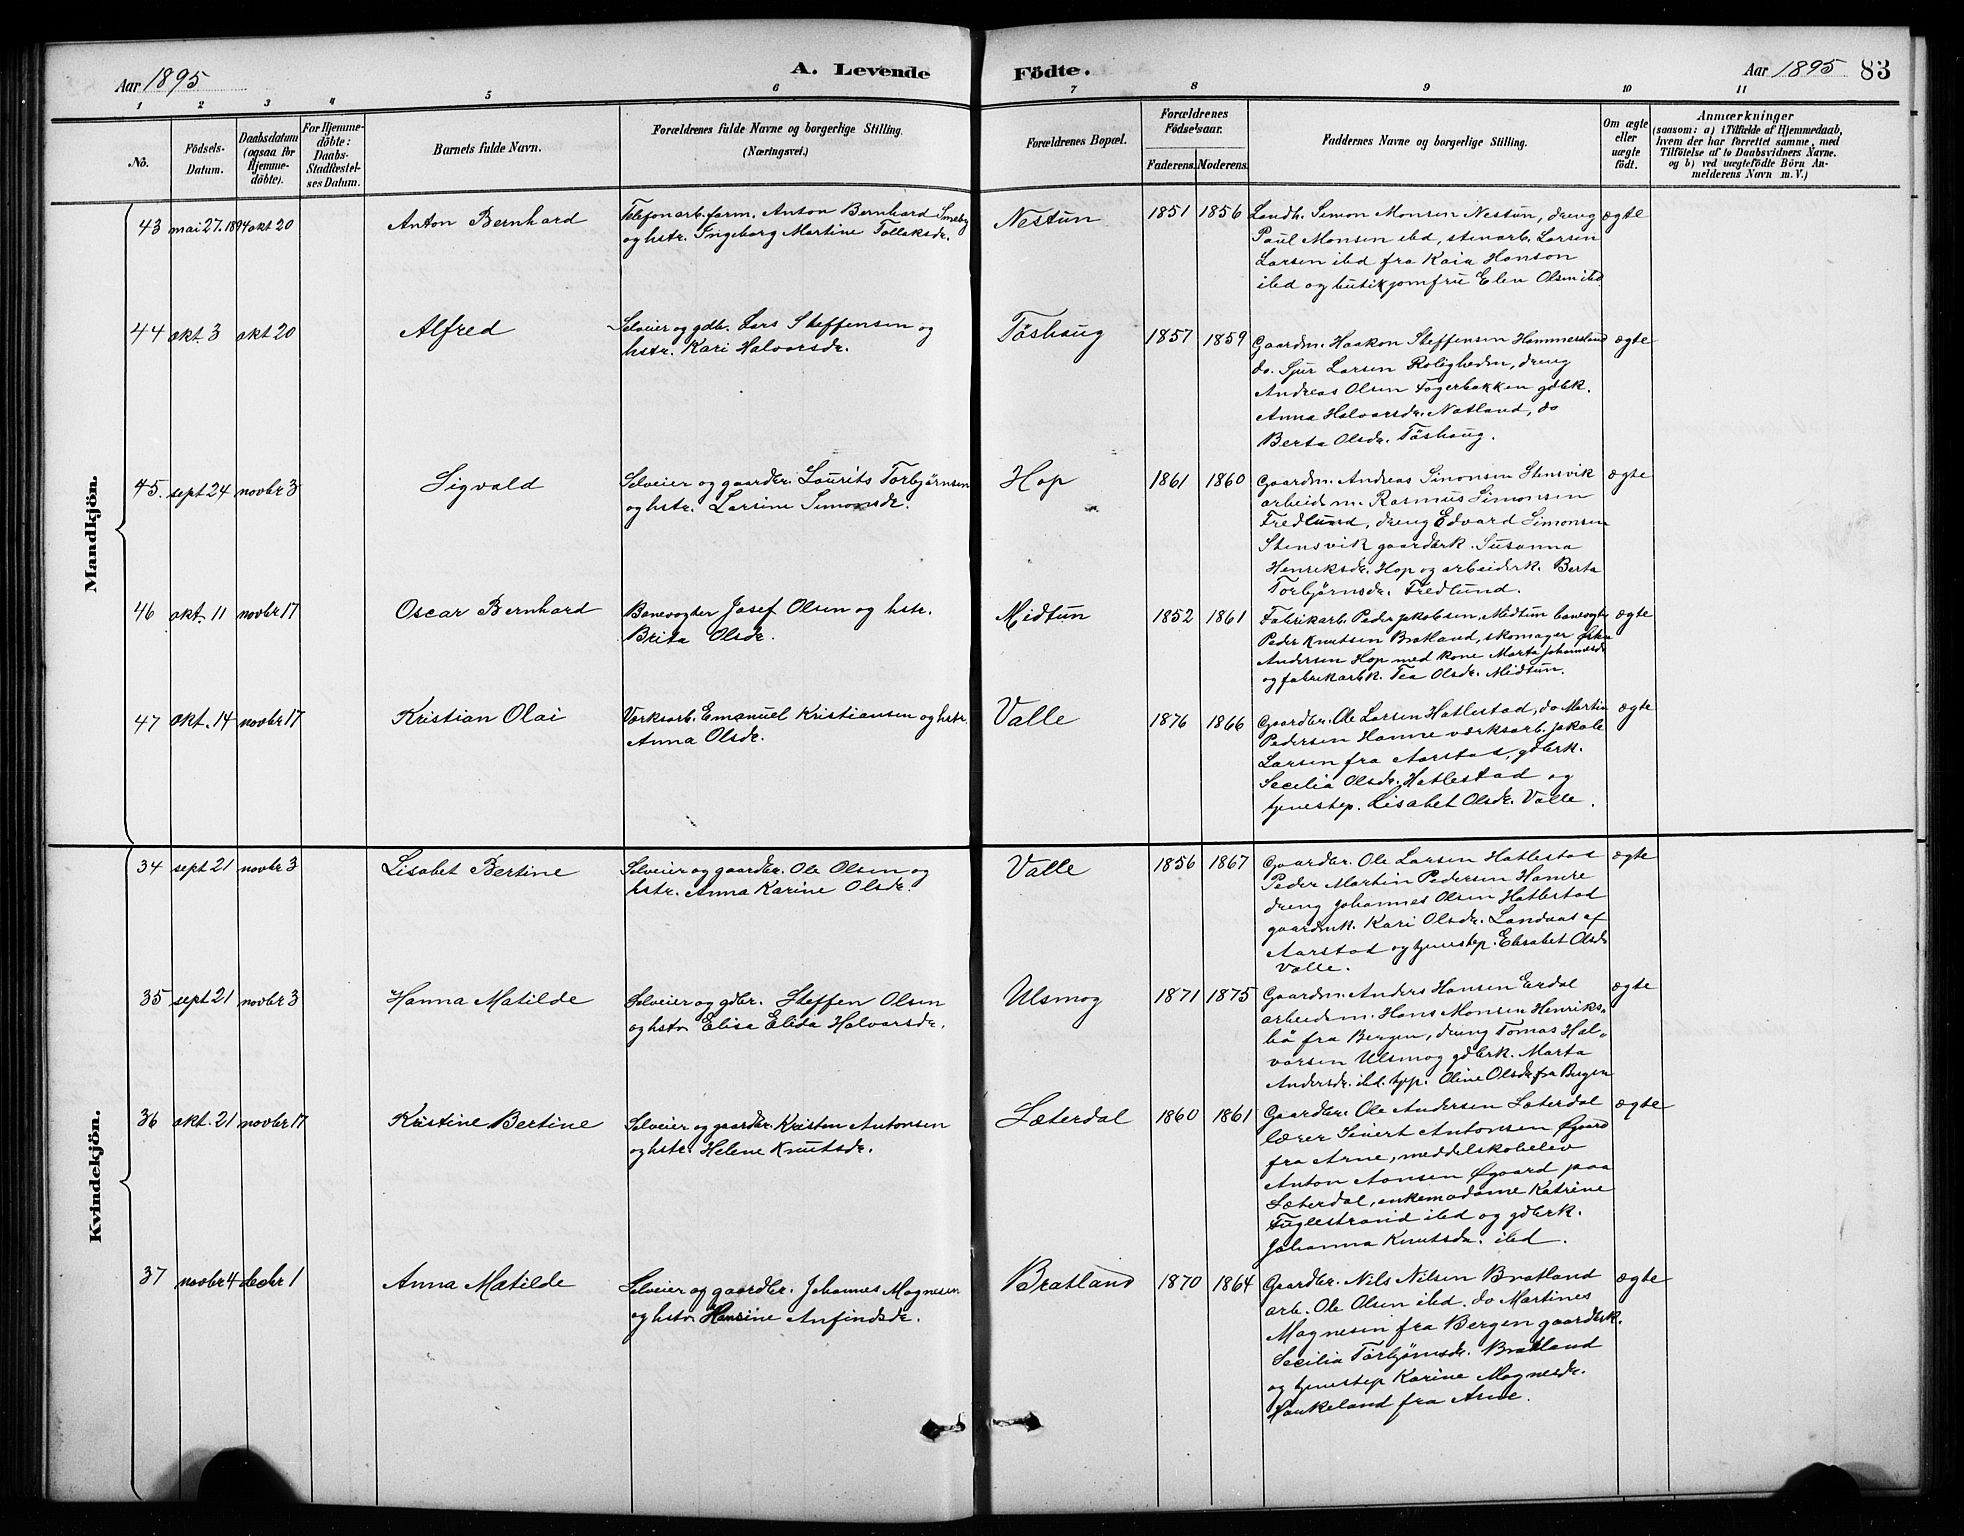 Aar 1895
A. Levende Födte.
Aar 1895 83
1 2 3 4 5 6 7 8 9 10 11
No.
Födsels-
Datum.
Daabsdatum
(ogsaa for
Hjemme-
döbte).
For Hjemme-
döbte:
Daabs-
Stadfæstel-
ses Datum.
Barnets fulde Navn.
Forældrenes fulde Navne og borgerlige Stilling.
(Næringsvei.)
Forældrenes Bopæl.
Forældrenes
Födselsaar.
Faderens. Moderens.
Faddernes Navne og borgerlige Stilling.
Om ægte
eller
uægte
födt.
Anmærkninger
(saasom: a) i Tilfælde af Hjemmedaab,
hvem der har forrettet samme, med
Tilföielse af to Daabsvidners Navne.
og b) ved uægtefödte Börn An-
melderens Navn m. V.)
Mandkjön.
43 mai 27.1894 okt 20
Anton Bernhard
Telefonarb.form. Anton Bernhard Smeby
og hstr. Ingeborg Martine Tollaksdr.
Nestun
1851 1856
Landh. Simon Monsen Nestun, dreng
Paul Monsen ibd, stenarb. Larsen
Larsen ibd fra Kaia Hanson
ibd og butikjomfru Elen Olsen ibd
ægte
44 okt. 3 okt 20
Alfred
Selveier og gdb. Lars Steffensen og
hstr. Kari Halvorsdr.
Töshaug
1857 1859
Gaardm. Haakon Steffensen Hammersland
do. Sjur Larsen Roligheden, dreng
Andreas Olsen Fagerbakken gdbk.
Anna Halvorsdr. Natland, do
Berta Olsdr. Töshaug.
ægte
45. sept 24 novbr 3
Sigvald
Selveier og gaardbr. Lourits Torbjørnsen
og hstr. Larsine Simonsdr.
Hop
1861 1860
Gaardm. Andreas Simonsen Stensvik
arbeidm. Rasmus Simonsen
Fredlund, dreng Edvard Simonsen
Stensvik gaardbrk. Susanna
Henriksdr. Hop og arbeiderk. Berta
Torbjørnsdr. Fredlund.
ægte
46 okt. 11 novbr 17
Oscar Bernhard
Banevogter Josef Olsen og hstr.
Brita Olsdr.
Midtun
1852 1861
Fabrikarb. Peder Jakobsen, Midtun banevogter
Peder Knutsen Bratland, skomager
Andersen Hop med kone Marta Johannesdr
og fabrikarbk. Tea Olsdr. Midtun.
ægte
47 okt. 14 novbr 17
Kristian Olai
Værksarb. Emanuel Kristiansen og hstr.
Anna Olsdr.
Valle
1876 1866
Gaardbr. Ole Larsen Hatlestad, do Martin
Pedersen Hamre værksarb. Jakob
Larsen fra Aarstad, gdbrk.
Secilia Olsdr. Hatlestad og
tjenestep. Lisabet Olsdr. Valle.
ægte
Kvindekjön.
34 sept 21 novbr 3
Lisabet Bertine
Selveier og gaardbr. Ole Olsen og
hstr. Anna Karine Olsdr.
Valle
1856 1867
Gaardbr. Ole Larsen Hatlestad
Peder Martin Pedersen Hamre
dreng Johannes Olsen Hatlestad
gaardmk. Kari Olsdr. Landaas af
Aarstad og tjenestep. Elisabet Olsdr
Valle.
ægte
35 sept 21 novbr 3
Hanna Matilde
Selveier og gdbr. Steffen Olsen
og hstr Elisa Elida Halvorsdr.
Ulsmog
1871 1875
Gaardm. Anders Hansen Erdal
arbeidm. Hans Monsen Henriks-
bö fra Bergen, dreng Tomas Hal-
vorsen Ulsmog gdbrk. Marta
Andersdr. ibd. tjp. Oline Olsdr fra Bergen
ægte
36 okt. 21 novbr 17
Kristine Bertine
Selveier og gaardbr. Kristen Antonsen
og hstr. Helene Knutsdr.
Sæterdal
1860 1861
Gaardbr. Ole Andersen Sæterdal
lærer Sivert Antonsen Øgaard
fra Arne, meddelskolelev
Anton Aonsen Øgaard paa
Sæterdal, enkemadame Katrine
Fuglestrand ibd og gdbrk.
Johanna Knutsdr. ibd.
ægte
37 novbr 4 decbr 1
Anna Matilde
Selveier og gaardbr. Johannes Magnesen
og hstr Hansine Anfindsdr.
Bratland
1870 1864
Gaardbr. Nils Nilsen Bratland
arb. Ole Olsen ibd. do Martines
Magnesen fra Bergen gaardbrk.
Secilia Torbjørnsdr. Bratland
og tjenestep Karine Magnesdr.
Haukeland fra Arne.
ægte